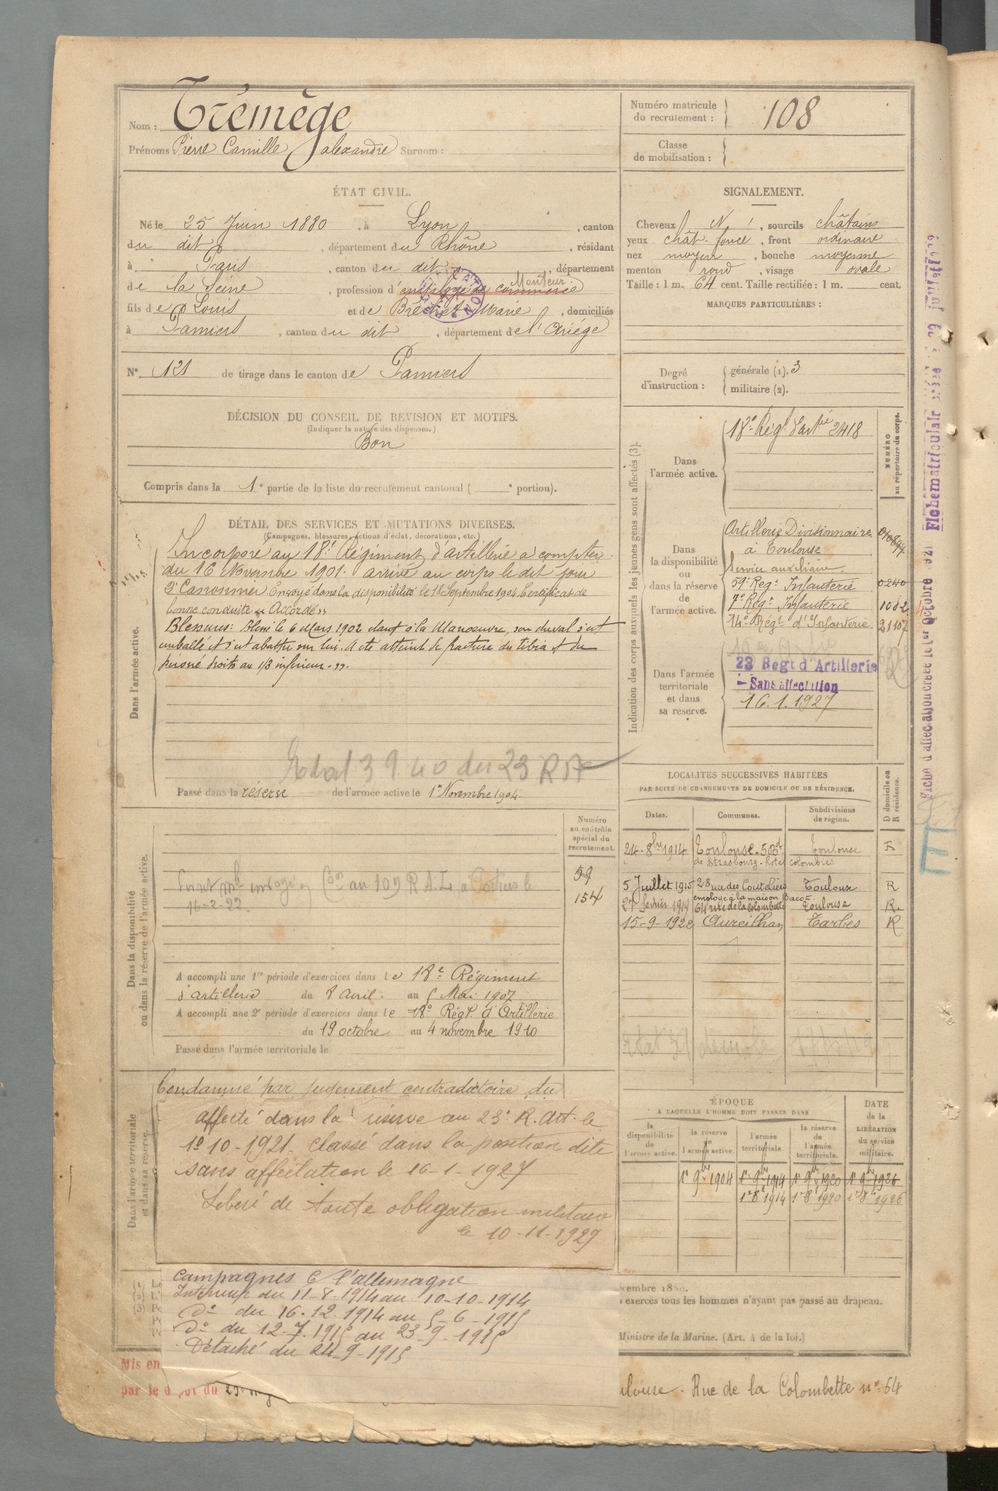 Nom : Trémège
Prénoms Pierre Camille Alexandre Surnom :
Numéro matricule du recrutement : 108
Classe de mobilisation :
ÉTAT CIVIL.
Né le 25 Juin 1880, à Lyon, canton
du dit, département du Rhône, résidant
à Paris, canton du dit, département
de la Seine, profession d'employé de commerce Monteur
fils de Louis et de Marie, domiciliés
à Pamiers, canton du dit, département de l'Ariège
N° 121 de tirage dans le canton de Pamiers
SIGNALEMENT.
Cheveux N, sourcils châtains
yeux chât. foncé, front ordinaire
nez moyen, bouche moyenne
menton rond, visage ovale
Taille : 1 m. 64 cent. Taille rectifiée : 1 m. cent.
MARQUES PARTICULIÈRES :
Degré d'instruction : générale (1). 3
militaire (2).
DÉCISION DU CONSEIL DE REVISION ET MOTIFS.
(Indiquer la nature des dispenses.)
Bon
Compris dans la 1e partie de la liste du recrutement cantonal ( e portion).
DÉTAIL DES SERVICES ET MUTATIONS DIVERSES.
(Campagnes, blessures, actions d'éclat, décorations, etc.)
Dans l'armée active.
Incorporé au 18e Régiment d'artillerie à compter
du 16 Novembre 1901. arrivé au corps le dit jour
2e Canonnier Envoyé dans la disponibilité le 18 Septembre 1904 Certificat de
bonne conduite « Accordé »
Blessures: Blessé le 6 Mars 1902 étant à la Manoeuvre, son cheval s'est
emballé et s'est abattu sur lui. A été atteint de fracture du tibia et du
péroné droits au 1/3 inférieur
Etat 3 9 40 du 23 RA
Passé dans la réserve de l'armée active le 1er Novembre 1904
Indication des corps auxquels les jeunes gens sont affectés (3).
NUMÉRO au répertoire du corps.
Dans l'armée active.
18e Régt d'artie 2418
Dans la disponibilité ou dans la réserve de l'armée active.
Artillerie Divisionnaire
à Toulouse
Service auxiliaire
59e Régt Infanterie 0240
7e Régt Infanterie 1082
14e Régt d'Infanterie 21107
Dans l'armée territoriale et dans sa réserve.
23 Régt d'Artillerie
- Sans affectation
16.1.1927
Fiche d'affectation créée le 1er Octobre 1921
Fiche matriculaire
Dans la disponibilité ou dans la réserve de l'armée active.
Numéro au contrôle spécial du recrutement.
59
154
16-2-22
A accompli une 1re période d'exercices dans le 18e Régiment
d'artillerie du 8 Avril au 5 Mai 1907
A accompli une 2e période d'exercices dans le 18e Régt d'Artillerie
du 19 octobre au 4 novembre 1910
Passé dans l'armée territoriale le
LOCALITÉS SUCCESSIVES HABITÉES
PAR SUITE DE CHANGEMENTS DE DOMICILE OU DE RÉSIDENCE.
Dates. Communes. Subdivisions de région. D domicile ou R résidence.
24-8bre 1914 Toulouse. 50 Bd de Strasbourg - Hotel colombies Toulouse
5 Juillet 1915 28 rue des Couteliers Toulouse R
employé à la maison
27 février 1919 64 rue de la Colombette Toulouse R
15-9-1928 Aureilhan Tarbes R
Dans l'armée territoriale et dans sa réserve
Condamné par jugement contradictoire du
Affecté dans la réserve au 23e R. Art. le
1er 10-1921 classé dans la position dite
sans affectation le 16-1-1927
Libéré de toute obligation militaire
le 10-11-1929
ÉPOQUE À LAQUELLE L'HOMME DOIT PASSER DANS
DATE de la LIBÉRATION du service militaire.
la disponibilité de l'armée active. la réserve de l'armée active. l'armée territoriale. la réserve de l'armée territoriale.
1er 9bre 1904 1er 9bre 1914 1er 9bre 1920 1er 9bre 1926
1er 8bre 1914 1er 8bre 1920 1er 8bre 1926
Campagnes C l'Allemagne
Intérieur du 11-8-1914 au 10-10-1914
do du 16-12-1914 au 5-6-1915
do du 12-7-1915 au 23-9-1915
Détaché du 24-9-1915
exercés tous les hommes n'ayant pas passé au drapeau.
Ministre de la Marine. (Art. 4 de la loi.)
Mis en
par le du
ulouse. Rue de la Colombette no 64